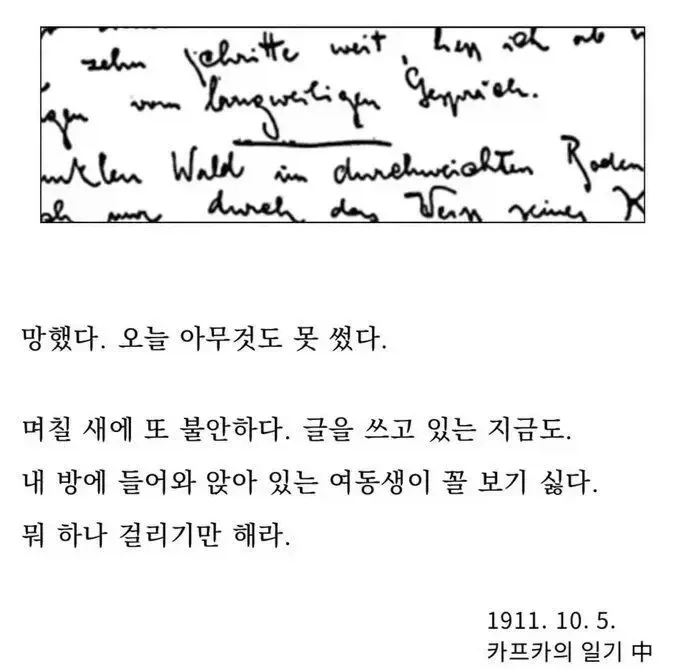 zehn Schritte weit, ich
vom langweiligen Gespräch.
Wald im durchweichten Boden
nur durch das Weiss seines K
망했다. 오늘 아무것도 못 썼다.
며칠 새에 또 불안하다. 글을 쓰고 있는 지금도.
내 방에 들어와 앉아 있는 여동생이 꼴 보기 싫다.
뭐 하나 걸리기만 해라.
1911. 10. 5.
카프카의 일기 中